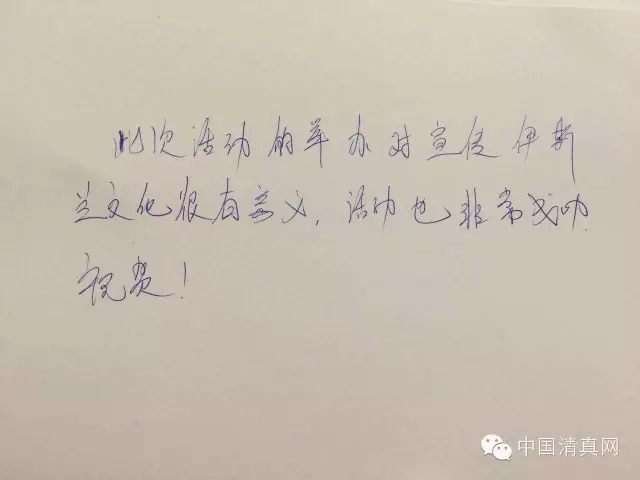 此次活动的举办对宣传伊斯
兰文化很有意义,活动也非常成功.
祝贺!
中国清真网